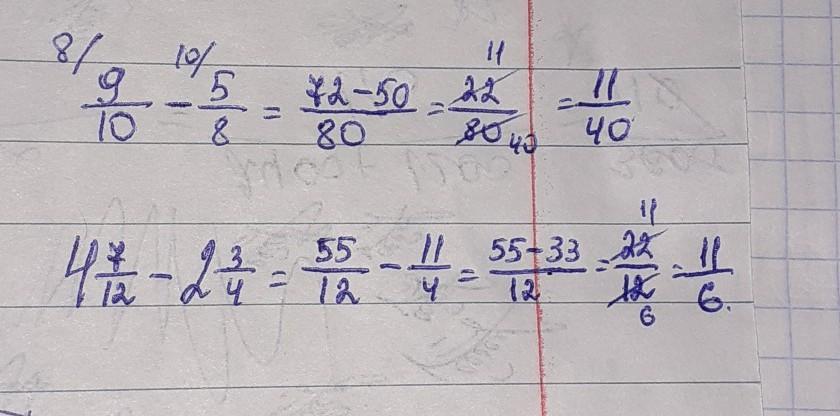 8/ 9/10 - 10/ 5/8 = (72-50)/80 = 22/80 11 40 = 11/40
4 7/12 - 2 3/4 = 55/12 - 11/4 = (55-33)/12 = 22/12 11 6 = 11/6.